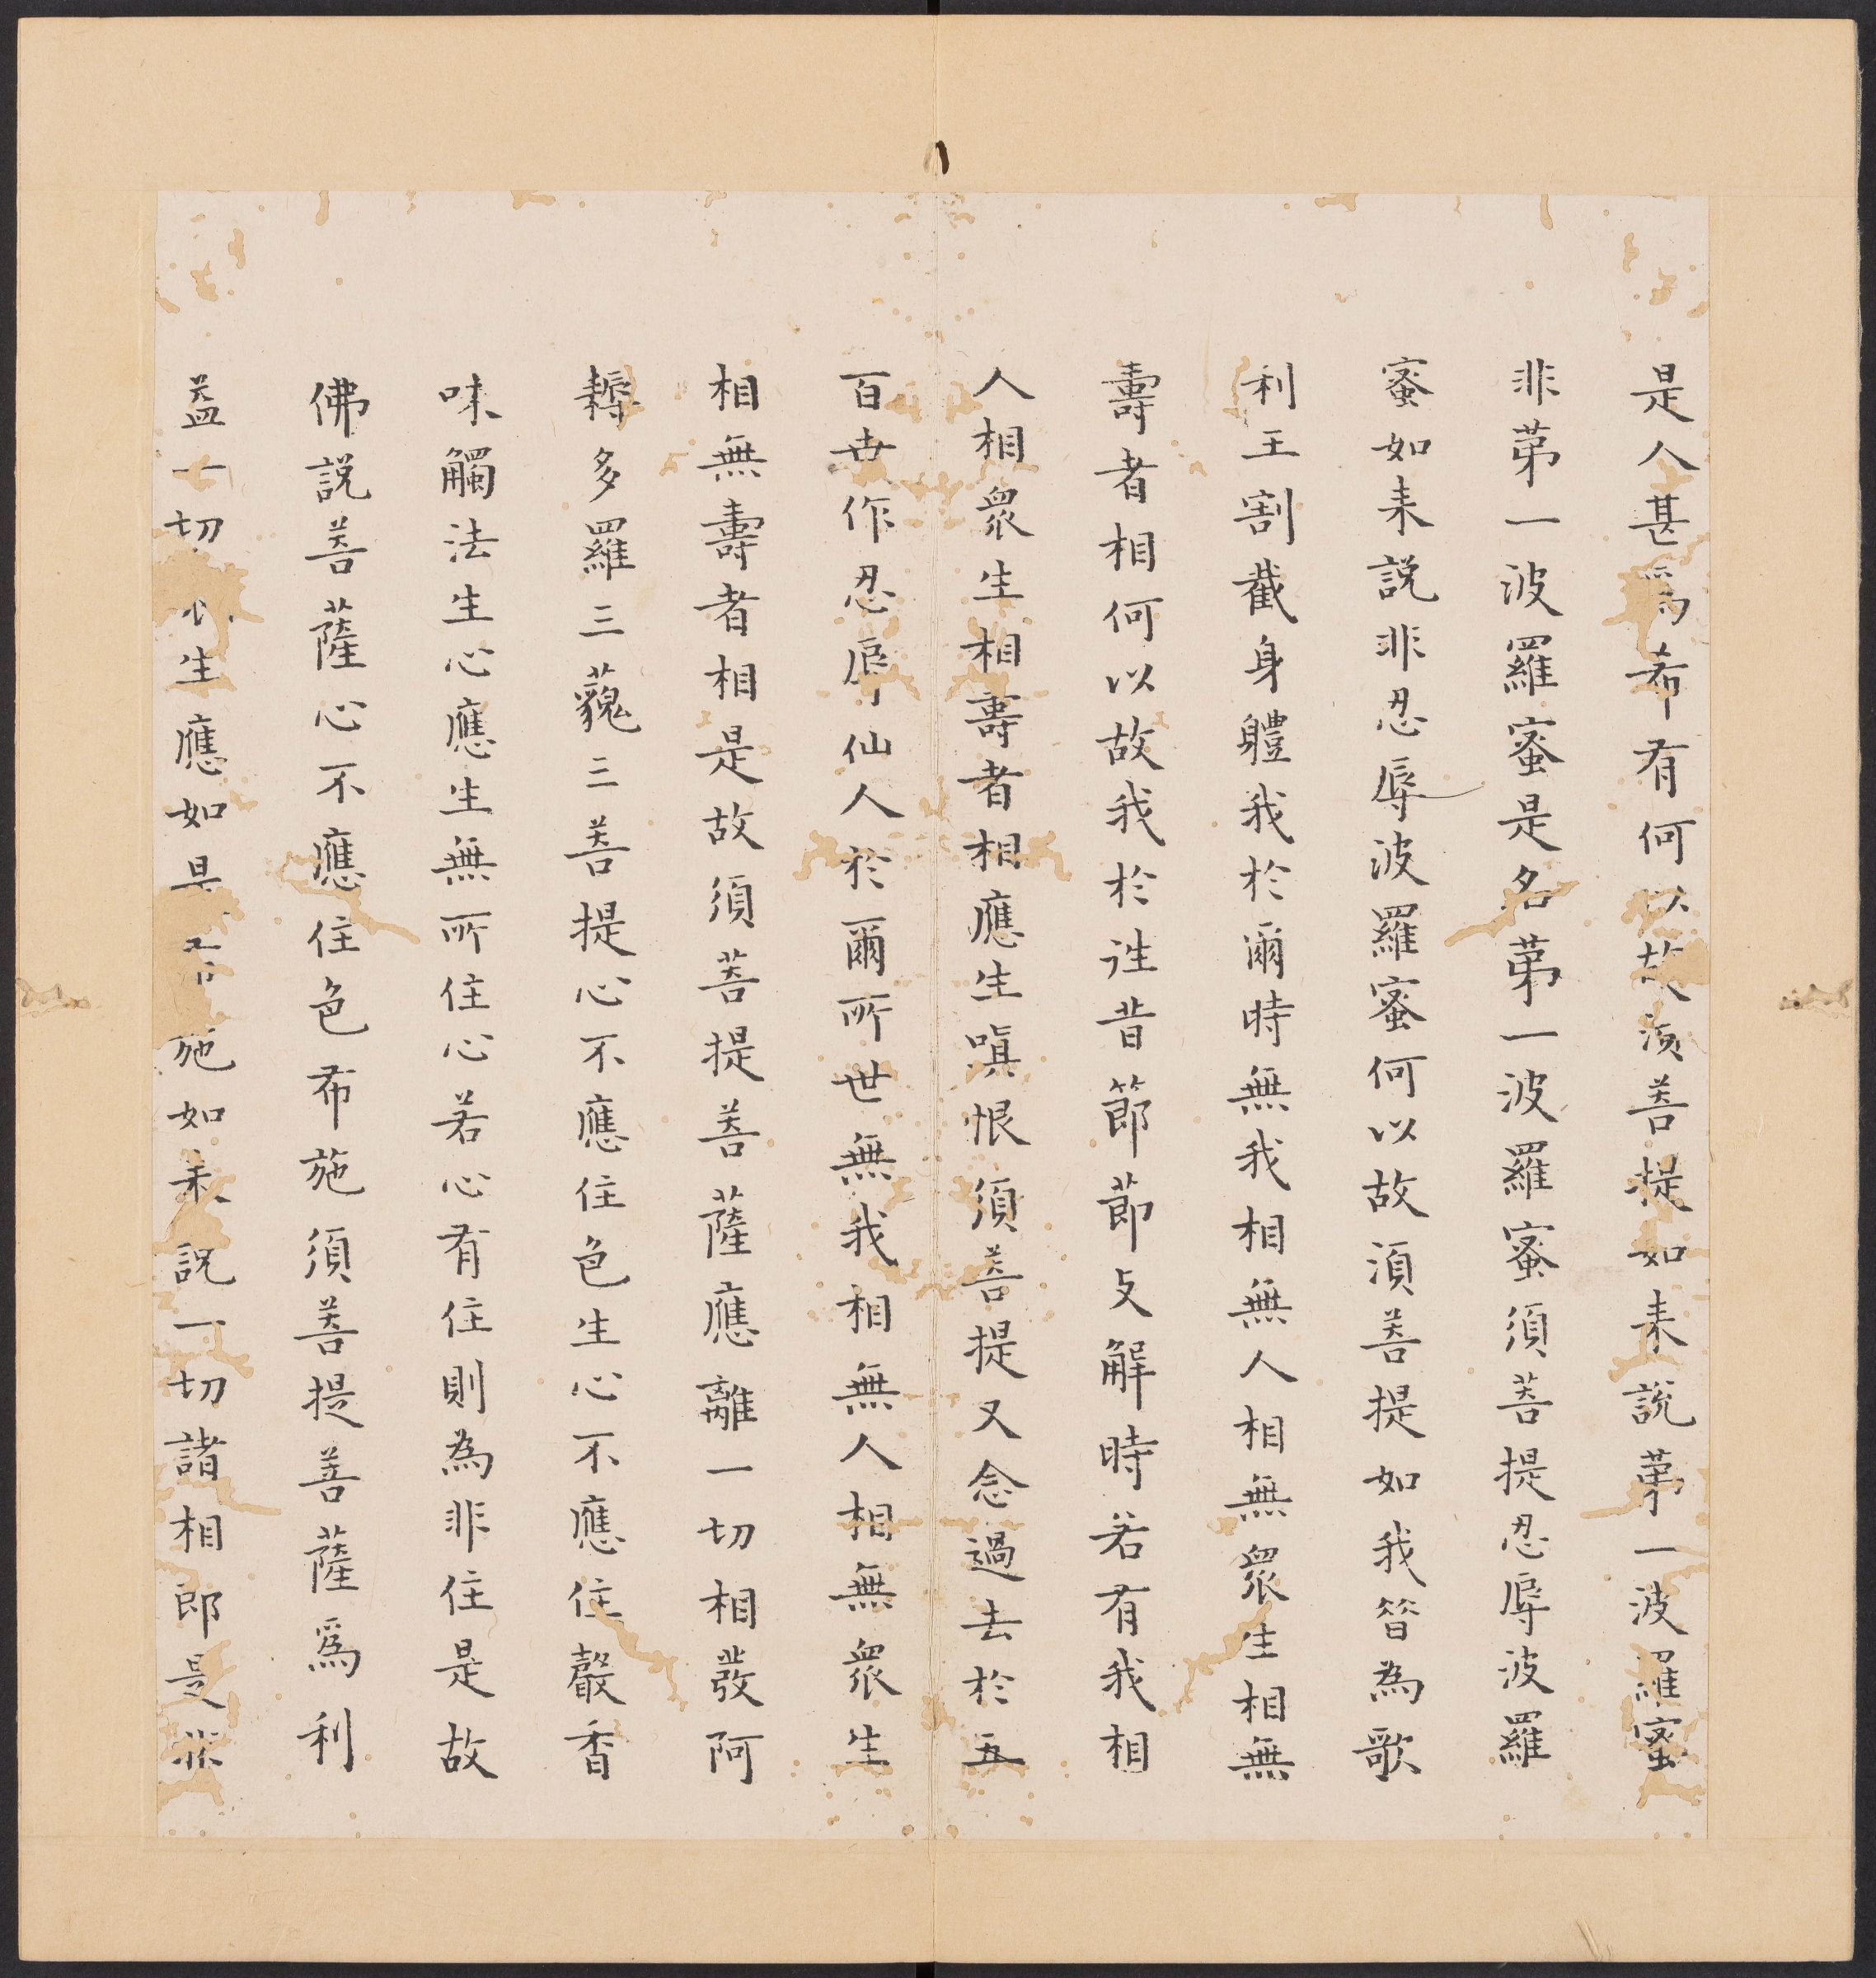 是人甚爲希有何以故須菩提如来說苐一波羅蜜
非苐一波羅蜜是名苐一波羅蜜須菩提忍辱波羅
蜜如来說非忍辱波羅蜜何以故須菩提如我昝為歌
利王割截身軆我於爾時無我相無人相無眾生相無
壽者相何以故我於徃昔節節支解時若有我相
人相眾生相壽者相應生嗔恨須菩提又念過去於五
百世作忍辱仙人於爾所世無我相無人相無眾生
相無壽者相是故須菩提菩薩應離一切相發阿
耨多羅三藐三菩提心不應住色生心不應住聲香
味觸法生心應生無所住心若心有住則為非住是故
佛說菩薩心不應住色布施須菩提菩薩爲利
益一切生應如是施如来說一切諸相即是非